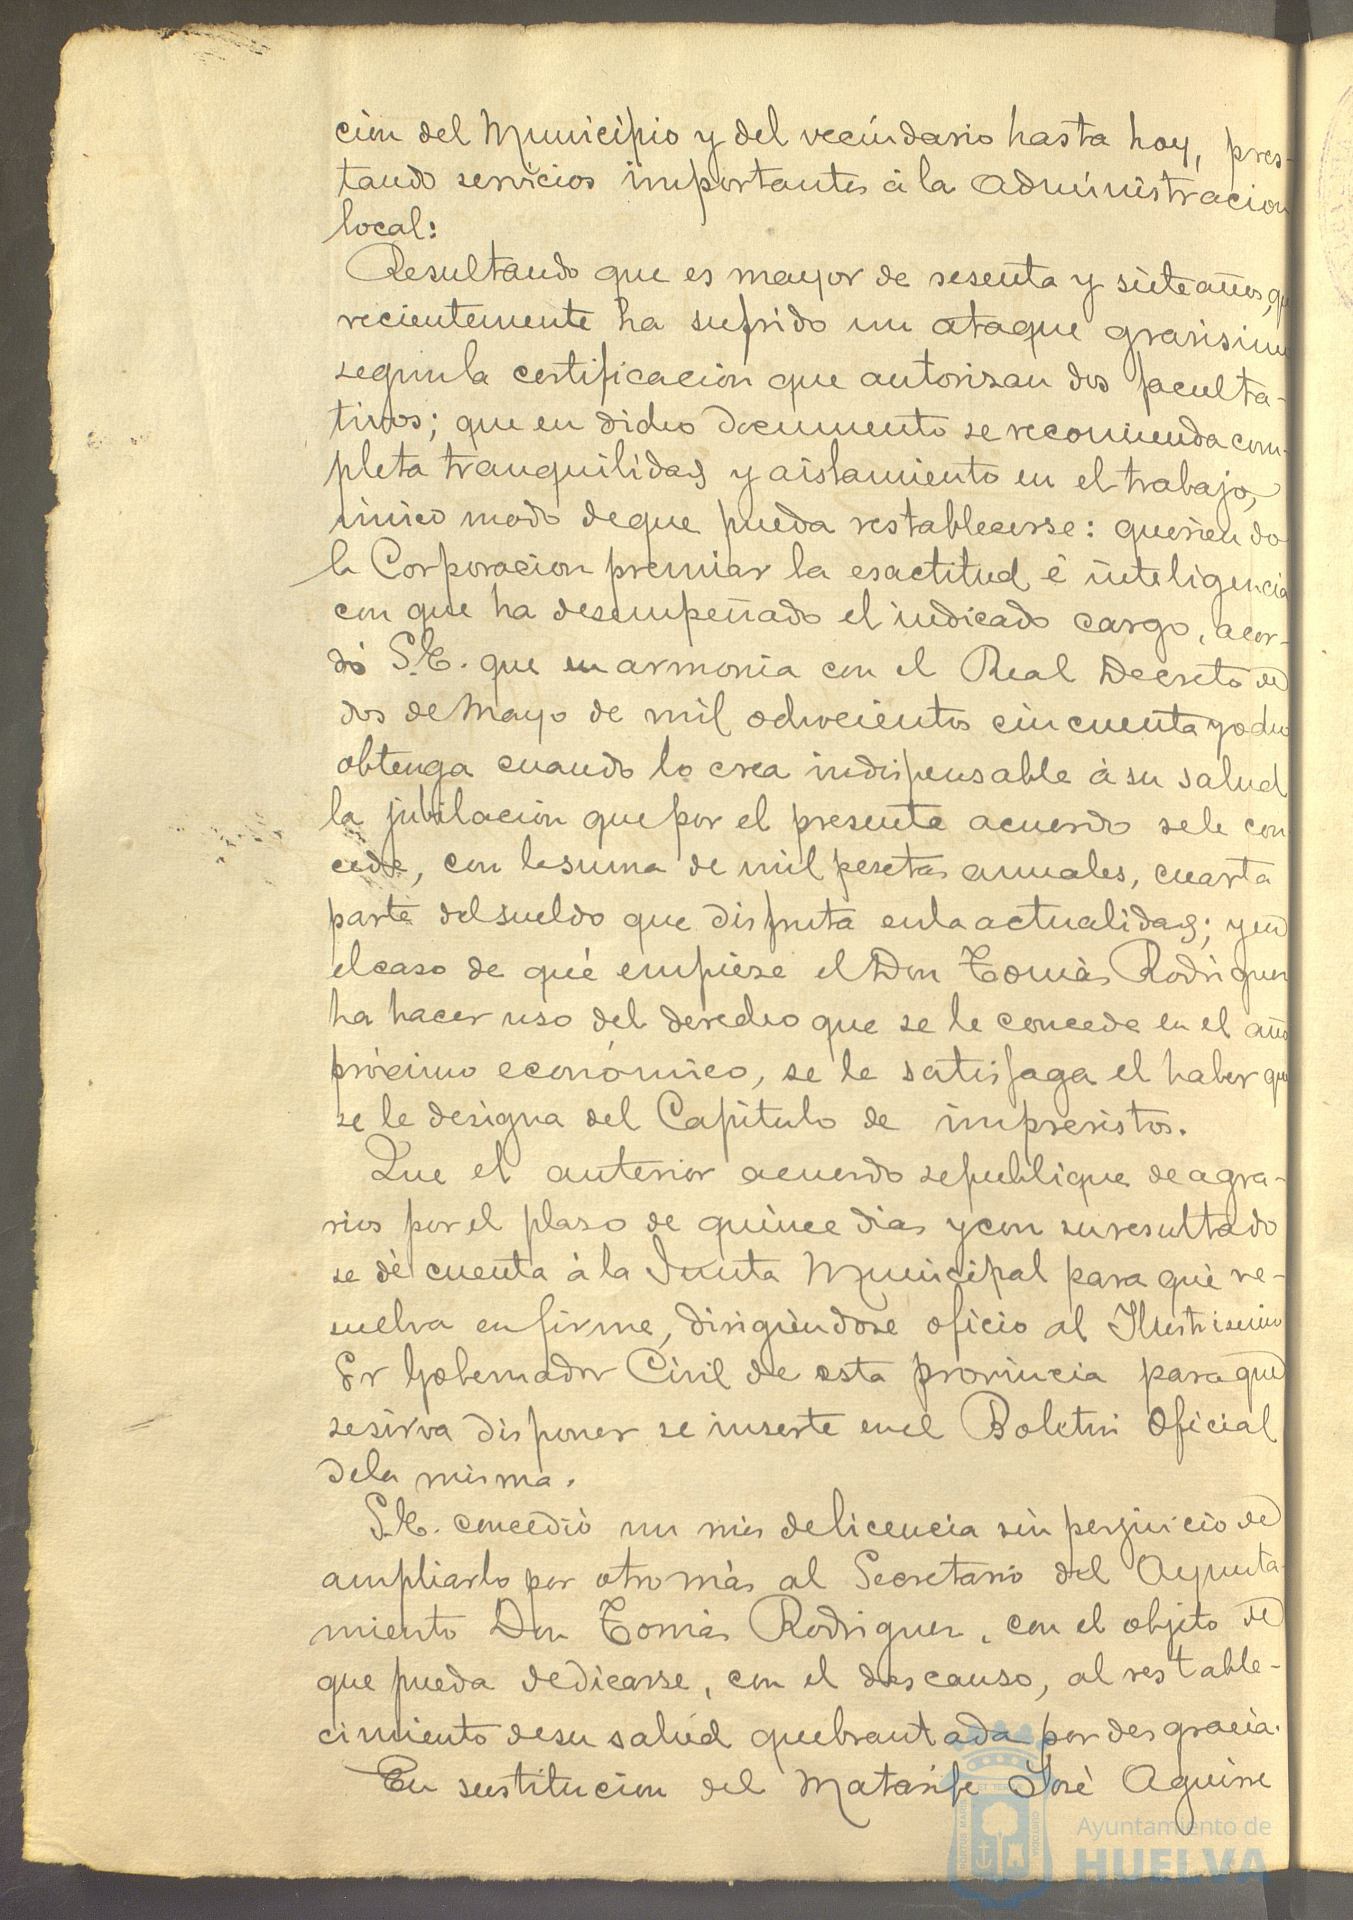 ción del Municipio y del vecindario hasta hoy, pres-
tando servicios importantes á la administracion
local:
Resultando que es mayor de sesenta y siete años, que
recientemente ha sufrido un ataque gravisimo
segun la certificacion que autorizan dos faculta-
tivos; que en dicho documento se recomienda com-
pleta tranquilidad y aislamiento en el trabajo,
único modo de que pueda restablecerse: queriendo
la Corporacion premiar la esactitud é inteligencia
con que ha desempeñado el indicado cargo, acor-
dó S.E. que en armonia con el Real Decreto de
dos de Mayo de mil ochocientos cincuenta y ocho
obtenga cuando lo crea indispensable á su salud
la jubilacion que por el presente acuerdo se le con
cede, con la suma de mil pesetas anuales, cuarta
parte del sueldo que disfruta en la actualidad; y en
el caso de qué empieze el Don Tomás Rodriguez
ha hacer uso del derecho que se le concede en el año
próximo económico, se le satisfaga el haber que
se le designa del Capítulo de imprevistos.
Que el anterior acuerdo se publique de agra-
vios por el plazo de quince dias y con su resultado
se dé cuenta á la Junta Municipal para qué re-
suelva en firme, dirigiéndose oficio al Ilustrisimo
Sr Gobernador Civil de esta provincia para que
se sirva disponer se inserte en el Boletin Oficial
de la misma.
S.E. concedió un mes de licencia sin perjuicio de
ampliarlo por otro más al Secretario del Ayunta-
miento Don Tomás Rodriguez, con el objeto de
que pueda dedicarse, con el descanso, al restable-
cimiento de su salud quebrantada por desgracia.
En sustitucion del Matarife José Aguirre
Ayuntamiento de
HUELVA